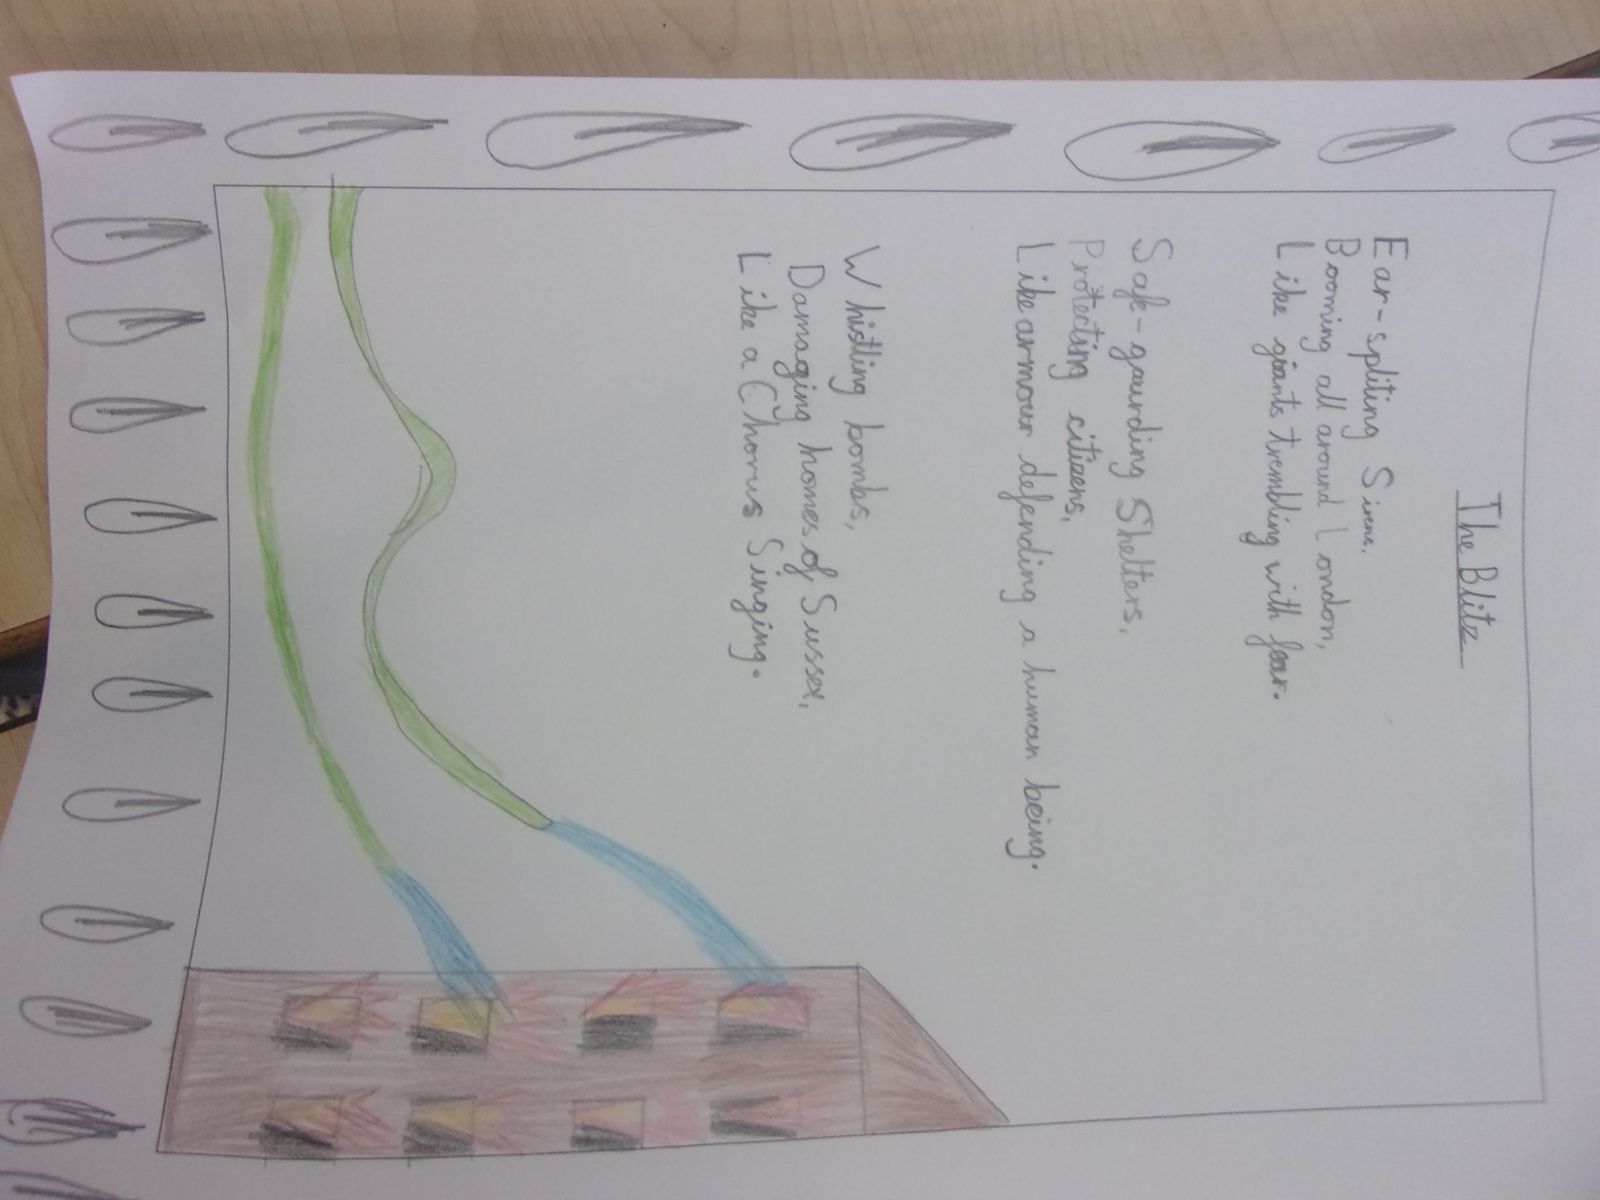 The Blitz
Ear-spliting Sirens,
Booming all around London,
Like giants trembling with fear.
Safe-gaurding Shelters,
Protecting citizens,
Like armour defending a human being.
Whistling bombs,
Damaging homes of Sussex,
Like a Chorus Singing.